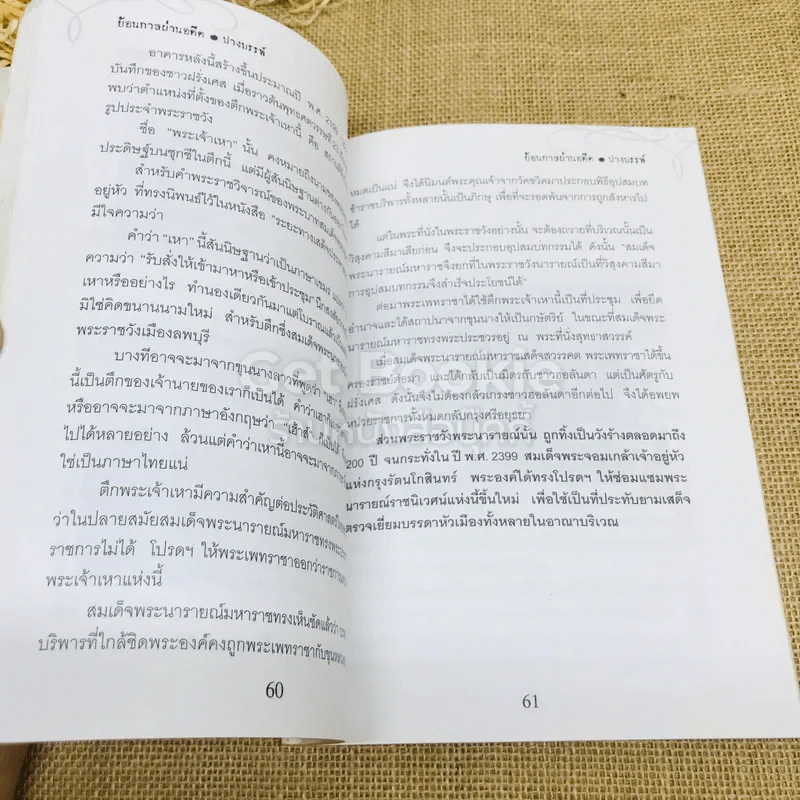 ย้อนกาลย่านอดีต ● ปางบรรพ์
อาคารหลังนี้สร้างขึ้นประมาณปี พ.ศ.
บันทึกของชาวฝรั่งเศส เมื่อราวต้นพุทธศตวรรษที่
พบว่าตำแหน่งที่ตั้งของตึกพระเจ้าเหานี้ คือ
รูปประจำพระราชวัง
ชื่อ "พระเจ้าเหา" นั้น คงหมายถึงนามของ
ประดิษฐ์บนชุกชีในตึกนี้ แต่มีผู้สันนิษฐานต่างกัน
สำหรับคำพระราชวิจารณ์ของพระบาทสมเด็จ
อยู่หัว ที่ทรงนิพนธ์ไว้ในหนังสือ "ระยะทางเสด็จ
มีใจความว่า
คำว่า "เหา" นี้สันนิษฐานว่าเป็นภาษาเขมร
ความว่า "รับสั่งให้เข้ามาหาหรือเข้าประชุม"
เหาหรืออย่างไร ทำนองเดียวกันมาแต่โบราณแล้ว
มิใช่คิดขนานนามใหม่ สำหรับตึกซึ่งสมเด็จพระ
พระราชวังเมืองลพบุรี
บางทีอาจจะมาจากขุนนางลาวที่พูดว่า
นี้เป็นตึกของเจ้านายของเราก็เป็นได้ คำว่าเฮา
หรืออาจจะมาจากภาษาอังกฤษว่า "เฮ้าส์"
ไปได้หลายอย่าง ล้วนแต่คำว่าเหานี้อาจจะมาจาก
ใช่เป็นภาษาไทยแน่
ตึกพระเจ้าเหามีความสำคัญต่อประวัติศาสตร์
ว่าในปลายสมัยสมเด็จพระนารายณ์มหาราชทรงพระ
ราชการไม่ได้ โปรดฯ ให้พระเพทราชาออกว่าราชการ
พระเจ้าเหาแห่งนี้
สมเด็จพระนารายณ์มหาราชทรงเห็นชัดแล้วว่า
บริพารที่ใกล้ชิดพระองค์คงถูกพระเพทราชากับขุน
60
ย้อนกาลย่านอดีต ● ปางบรรพ์
หมดเป็นแน่ จึงได้นิมนต์พระคุณเจ้าจากวัดชวิดมาประกอบพิธีอุปสมบท
ข้าราชบริพารทั้งหลายนั้นเป็นภิกษุ เพื่อที่จะรอดพ้นจากการถูกสังหารไป
ได้
แต่ในพระที่นั่งในพระราชวังอย่างนั้น จะต้องถวายที่บริเวณนั้นเป็น
วิสุงคามสีมาเสียก่อน จึงจะประกอบอุปสมบทกรรมได้ ดังนั้น "สมเด็จ
พระนารายณ์มหาราชจึงยกที่ในพระราชวังนารายณ์เป็นที่วิสุงคามสีมา
การอุปสมบทกรรมจึงสำเร็จประโยชน์ได้"
ต่อมาพระเพทราชาได้ใช้ตึกพระเจ้าเหานี้เป็นที่ประชุม เพื่อยึด
อำนาจและได้สถาปนาจากขุนนางให้เป็นกษัตริย์ ในขณะที่สมเด็จพระ
นารายณ์มหาราชทรงพระประชวรอยู่ ณ พระที่นั่งสุทธาสวรรค์
เมื่อสมเด็จพระนารายณ์มหาราชเสด็จสวรรคต พระเพทราชาได้ขึ้น
ครองราชย์ต่อมา และได้กลับเป็นมิตรกับชาวฮอลันดา แต่เป็นศัตรูกับ
ฝรั่งเศส ดังนั้นจึงไม่ต้องกลัวเกรงชาวฮอลันดาอีกต่อไป จึงได้อพยพ
หน่วยราชการทั้งหมดกลับกรุงศรีอยุธยา
ส่วนพระราชวังพระนารายณ์นั้น ถูกทิ้งเป็นวังร้างตลอดมาถึง
200 ปี จนกระทั่งใน ปี พ.ศ. 2399 สมเด็จพระจอมเกล้าเจ้าอยู่หัว
แห่งกรุงรัตนโกสินทร์ พระองค์ได้ทรงโปรดฯ ให้ซ่อมแซมพระ
นารายณ์ราชนิเวศน์แห่งนี้ขึ้นใหม่ เพื่อใช้เป็นที่ประทับยามเสด็จ
ตรวจเยี่ยมบรรดาหัวเมืองทั้งหลายในอาณาบริเวณ
61